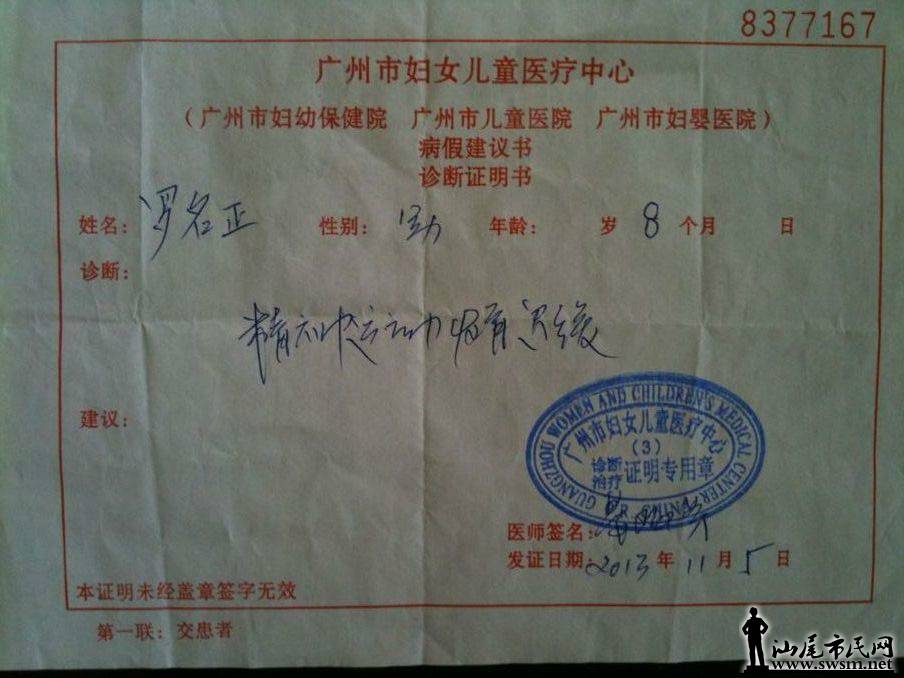 8377167
广州市妇女儿童医疗中心
(广州市妇幼保健院 广州市儿童医院 广州市妇婴医院)
病假建议书
诊断证明书
姓名: 罗名正 性别: 男 年龄: 岁 8 个月 日
诊断:
精神运动发育迟缓
建议:
GUANGZHOU WOMEN AND CHILDREN'S MEDICAL CENTER
广州市妇女儿童医疗中心
(3)
诊断治疗 证明专用章
医师签名:
发证日期: 2013 年 11 月 5 日
本证明未经盖章签字无效
第一联: 交患者
汕尾市民网
www.swsm.net